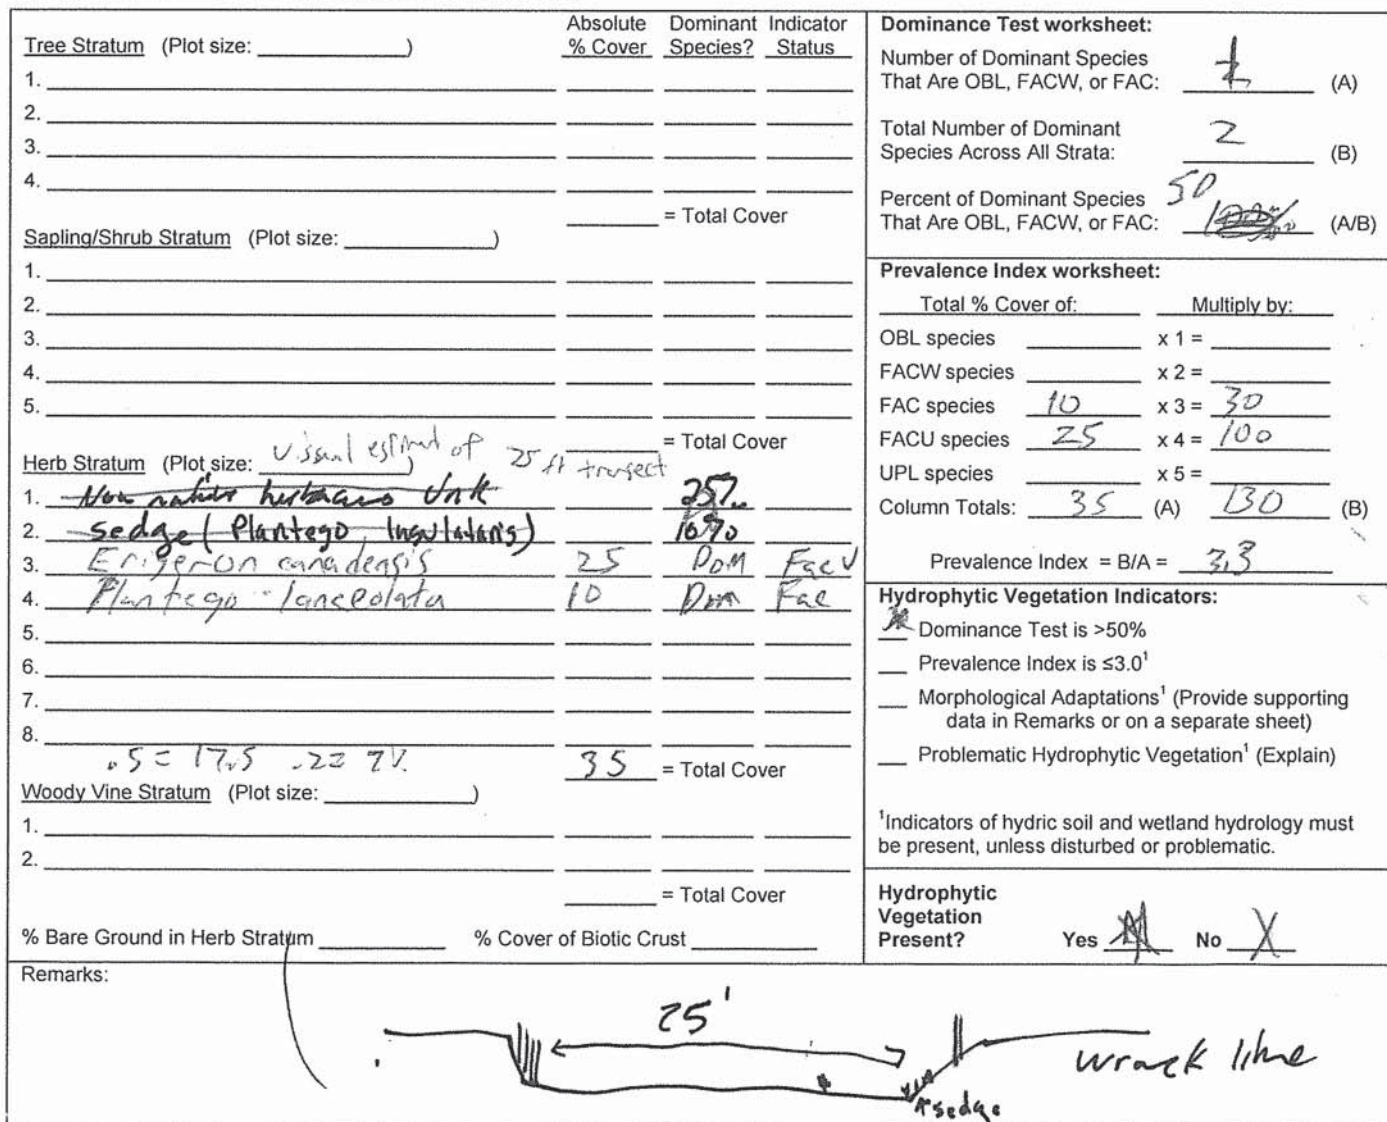 Absolute Dominant Indicator
Tree Stratum (Plot size: ____________) % Cover Species? Status
1.
2.
3.
4.
______ = Total Cover
Sapling/Shrub Stratum (Plot size: ____________)
1.
2.
3.
4.
5.
______ = Total Cover
visual estmat of 25 ft transect
Herb Stratum (Plot size: ____________)
1. Non native herbaceous Unk 25%
2. sedge (Plantego Insulataris) 10%
3. Erigeron canadensis 25 DOM FacU
4. Plantego lanceolata 10 Dom Fac
5.
6.
7.
8.
.5 = 17.5 .2 = 7%
35 = Total Cover
Woody Vine Stratum (Plot size: ____________)
1.
2.
______ = Total Cover
% Bare Ground in Herb Stratum ____________ % Cover of Biotic Crust ____________
Dominance Test worksheet:
Number of Dominant Species
That Are OBL, FACW, or FAC: 1 (A)
Total Number of Dominant
Species Across All Strata: 2 (B)
Percent of Dominant Species 50
That Are OBL, FACW, or FAC: 100% (A/B)
Prevalence Index worksheet:
Total % Cover of: Multiply by:
OBL species ______ x 1 = ______
FACW species ______ x 2 = ______
FAC species 10 x 3 = 30
FACU species 25 x 4 = 100
UPL species ______ x 5 = ______
Column Totals: 35 (A) 130 (B)
Prevalence Index = B/A = 3.3
Hydrophytic Vegetation Indicators:
Dominance Test is >50%
__ Prevalence Index is ≤3.0¹
__ Morphological Adaptations¹ (Provide supporting
data in Remarks or on a separate sheet)
__ Problematic Hydrophytic Vegetation¹ (Explain)
¹Indicators of hydric soil and wetland hydrology must
be present, unless disturbed or problematic.
Hydrophytic
Vegetation
Present? Yes ____ No X
Remarks:
25'
wrack line
sedge